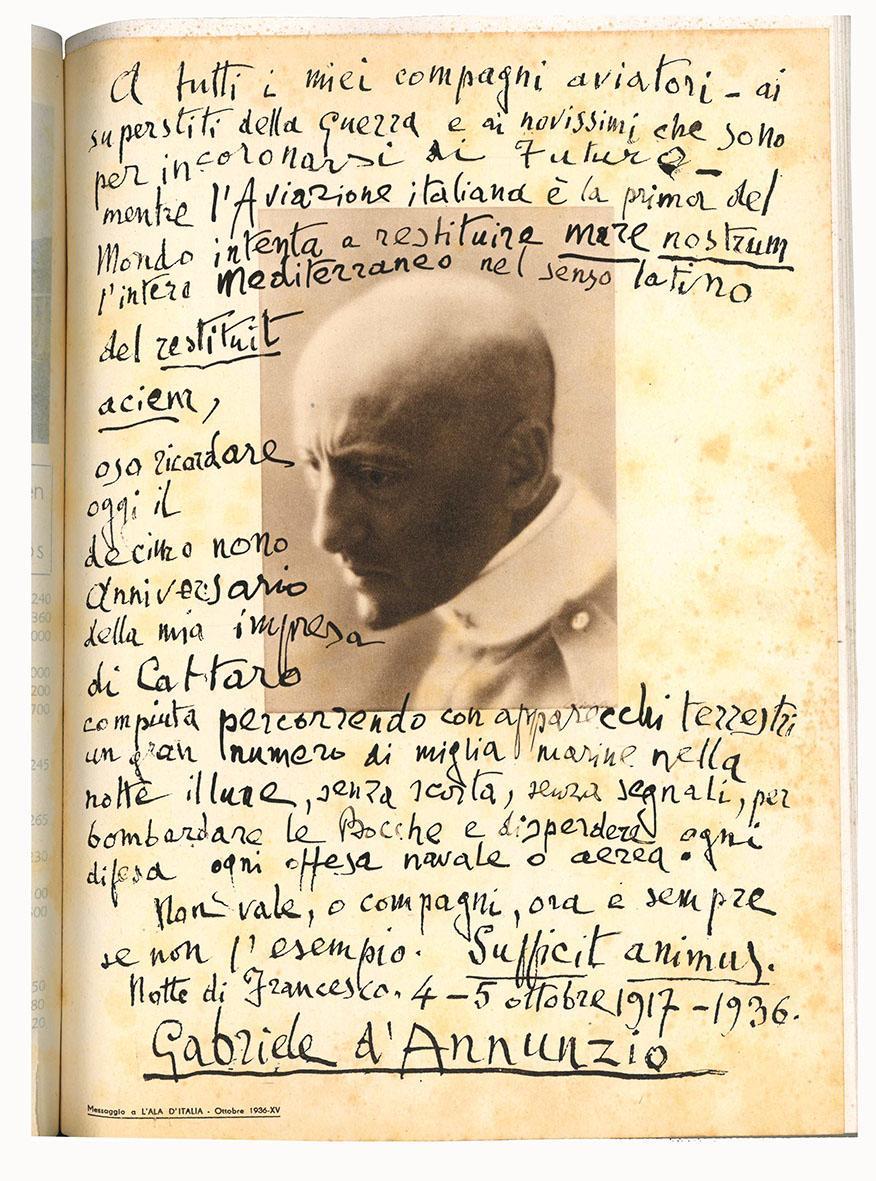 A tutti i miei compagni aviatori - ai
superstiti della Guerra e ai novissimi che sono
per incoronarsi di Futuro -
mentre l'Aviazione italiana è la prima del
Mondo intenta a restituire mare nostrum
l'intero Mediterraneo nel senso latino
del restituit
aciem,
oso ricordare
oggi il
decimo nono
Anniversario
della mia impresa
di Cattaro
compiuta percorrendo con apparecchi terrestri
un gran numero di miglia marine nella
notte illune, senza scorta, senza segnali, per
bombardare le Bocche e disperdere ogni
difesa ogni offesa navale o aerea.
Non vale, o compagni, ora e sempre
se non l'esempio. Sufficit animus.
Notte di Francesco. 4-5 ottobre 1917-1936.
Gabriele d'Annunzio
Messaggio a L'ALA D'ITALIA - Ottobre 1936-XV
en
os
240
360
000
000
200
700
245
265
230
00
500
50
80
20